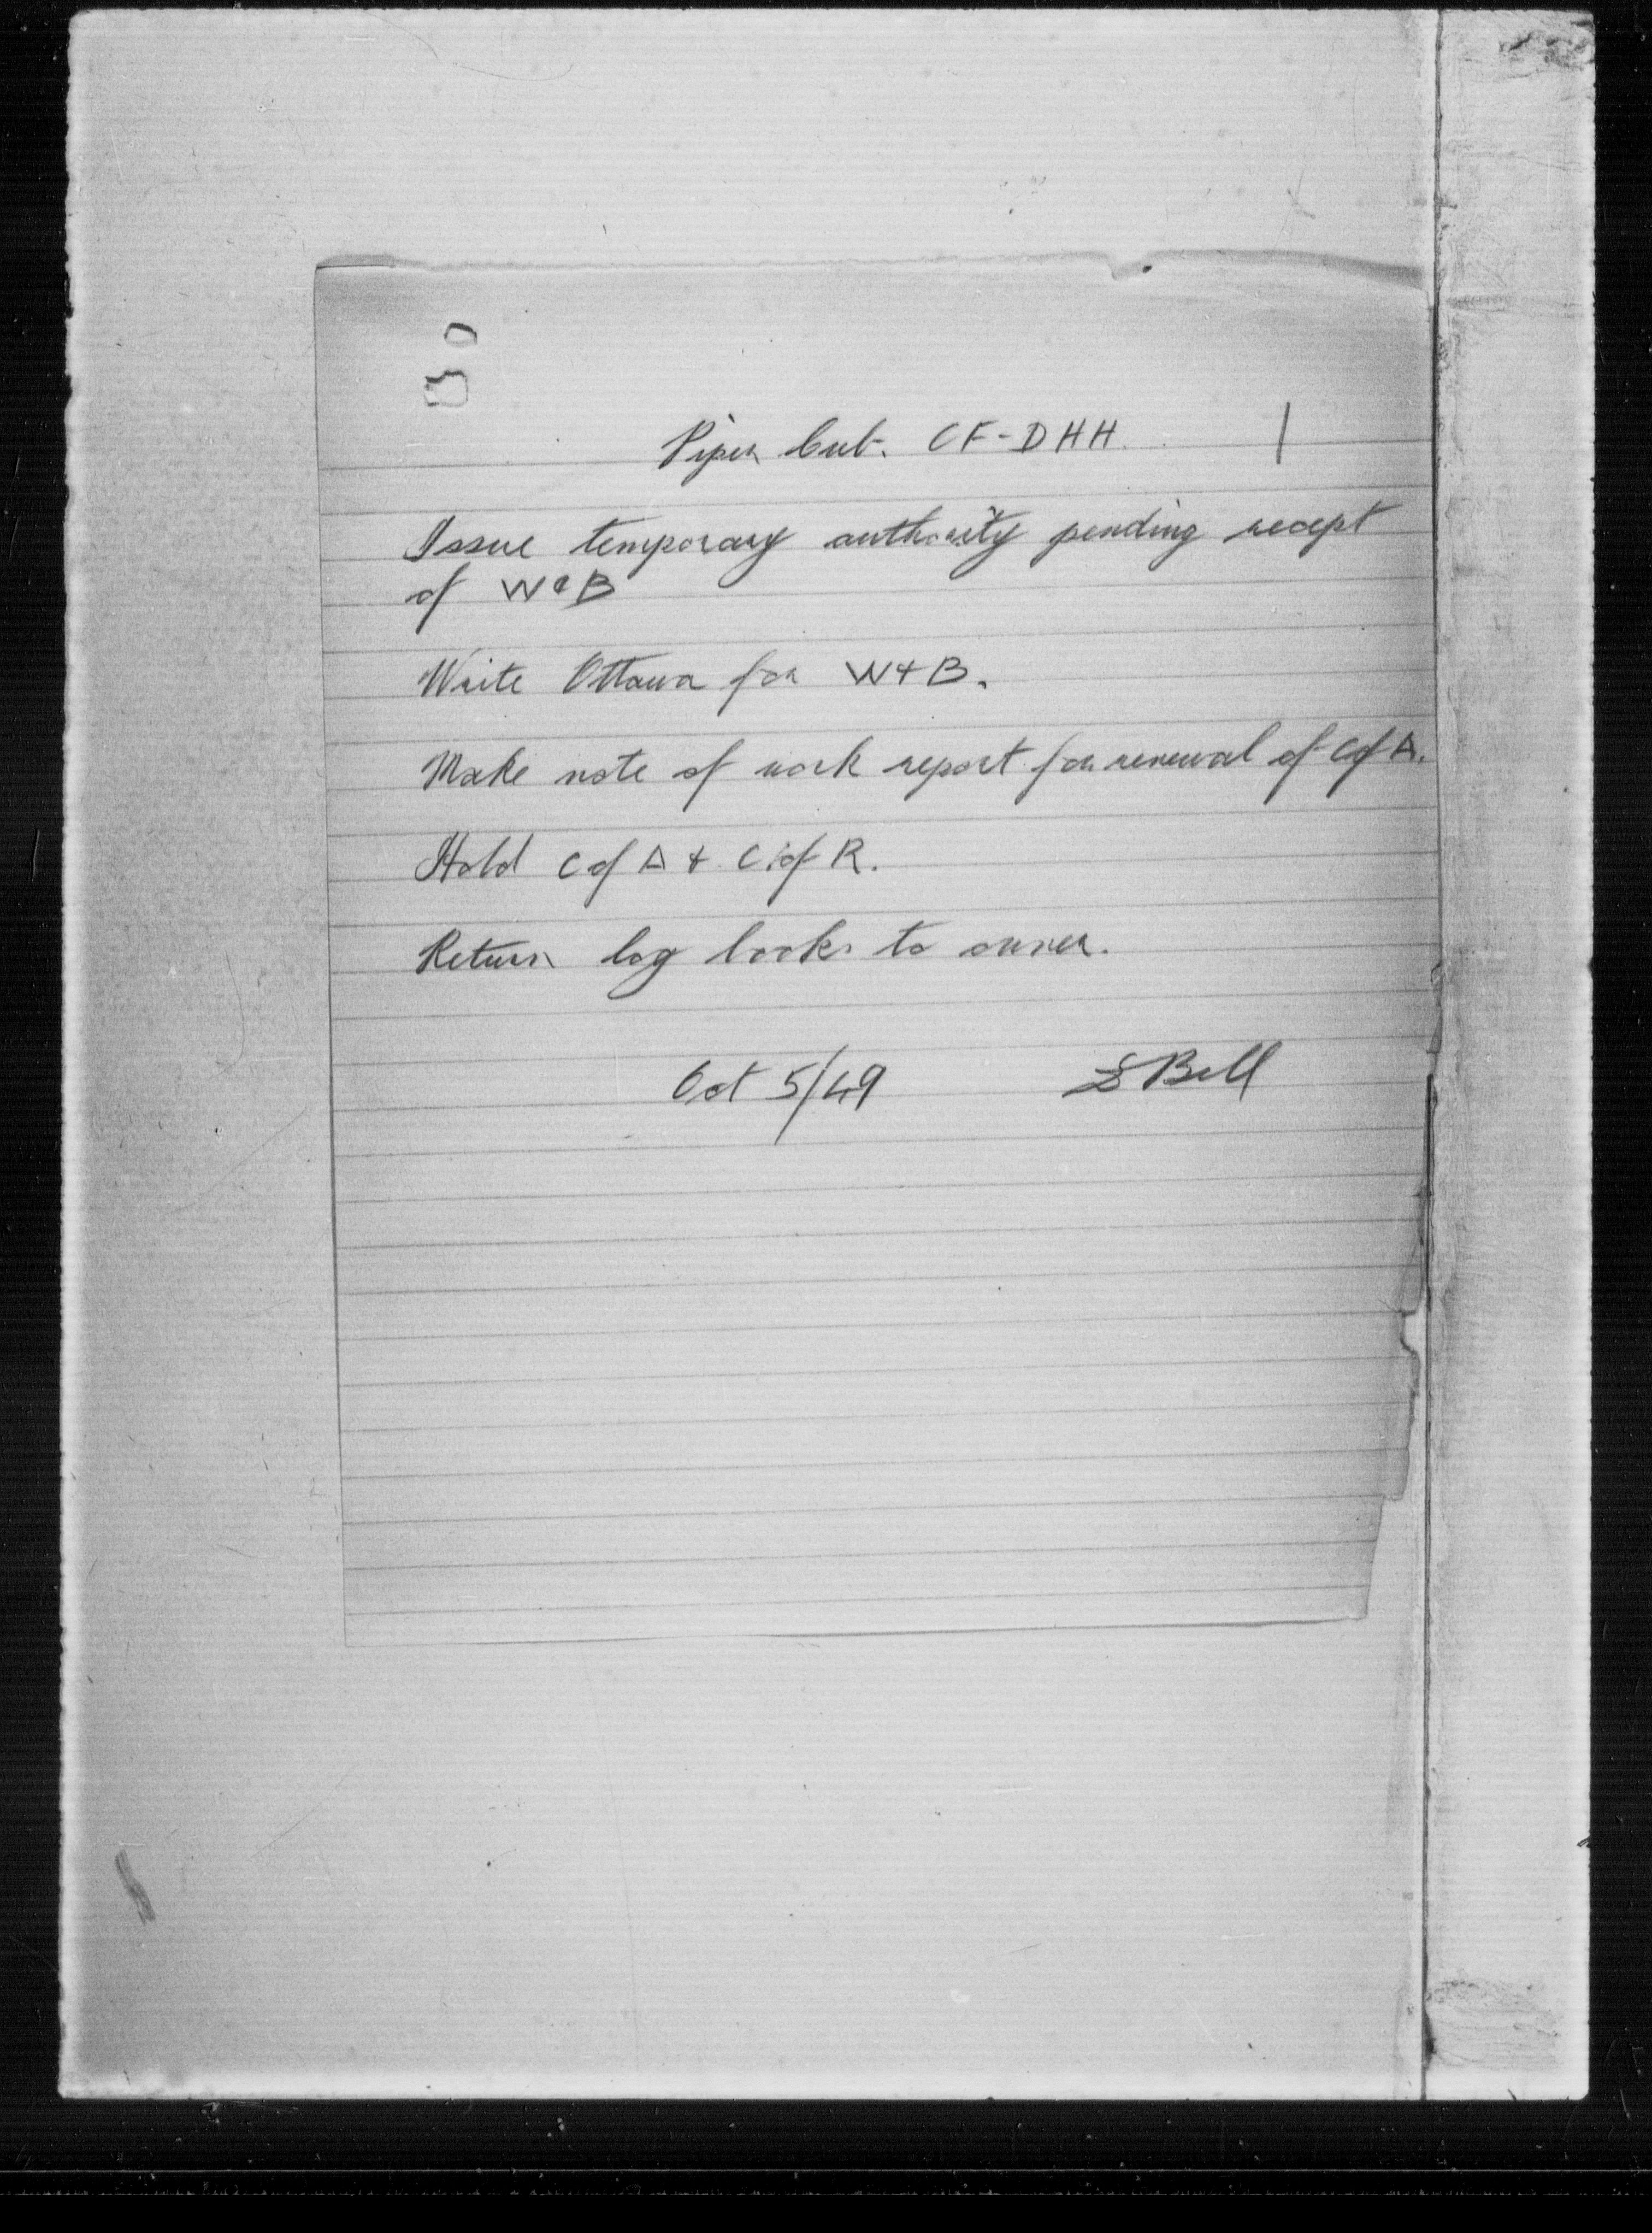 30
Piper Cub. CF-DHH. 1
Issue temporary authority pending reciept
of W & B
Write Ottawa for W + B.
Make note of work report for renewal of C of A.
Hold C of A + C. of R.
Return log books to owner.
Oct 5/49 Bell